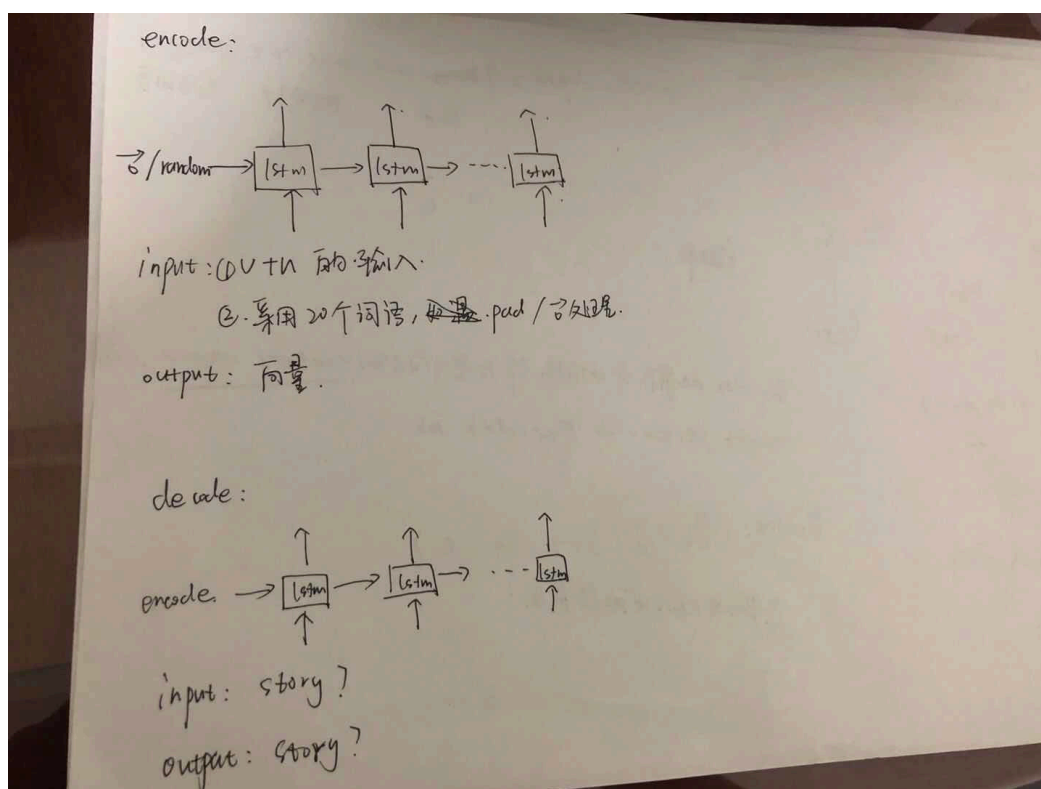 encode:
→0/random lstm lstm .... lstm
input: ① V+N 的输入.
②. 采用20个词语, pad/→0处理.
output: 向量.
decode:
encode. lstm lstm .... lstm
input: story?
output: story?